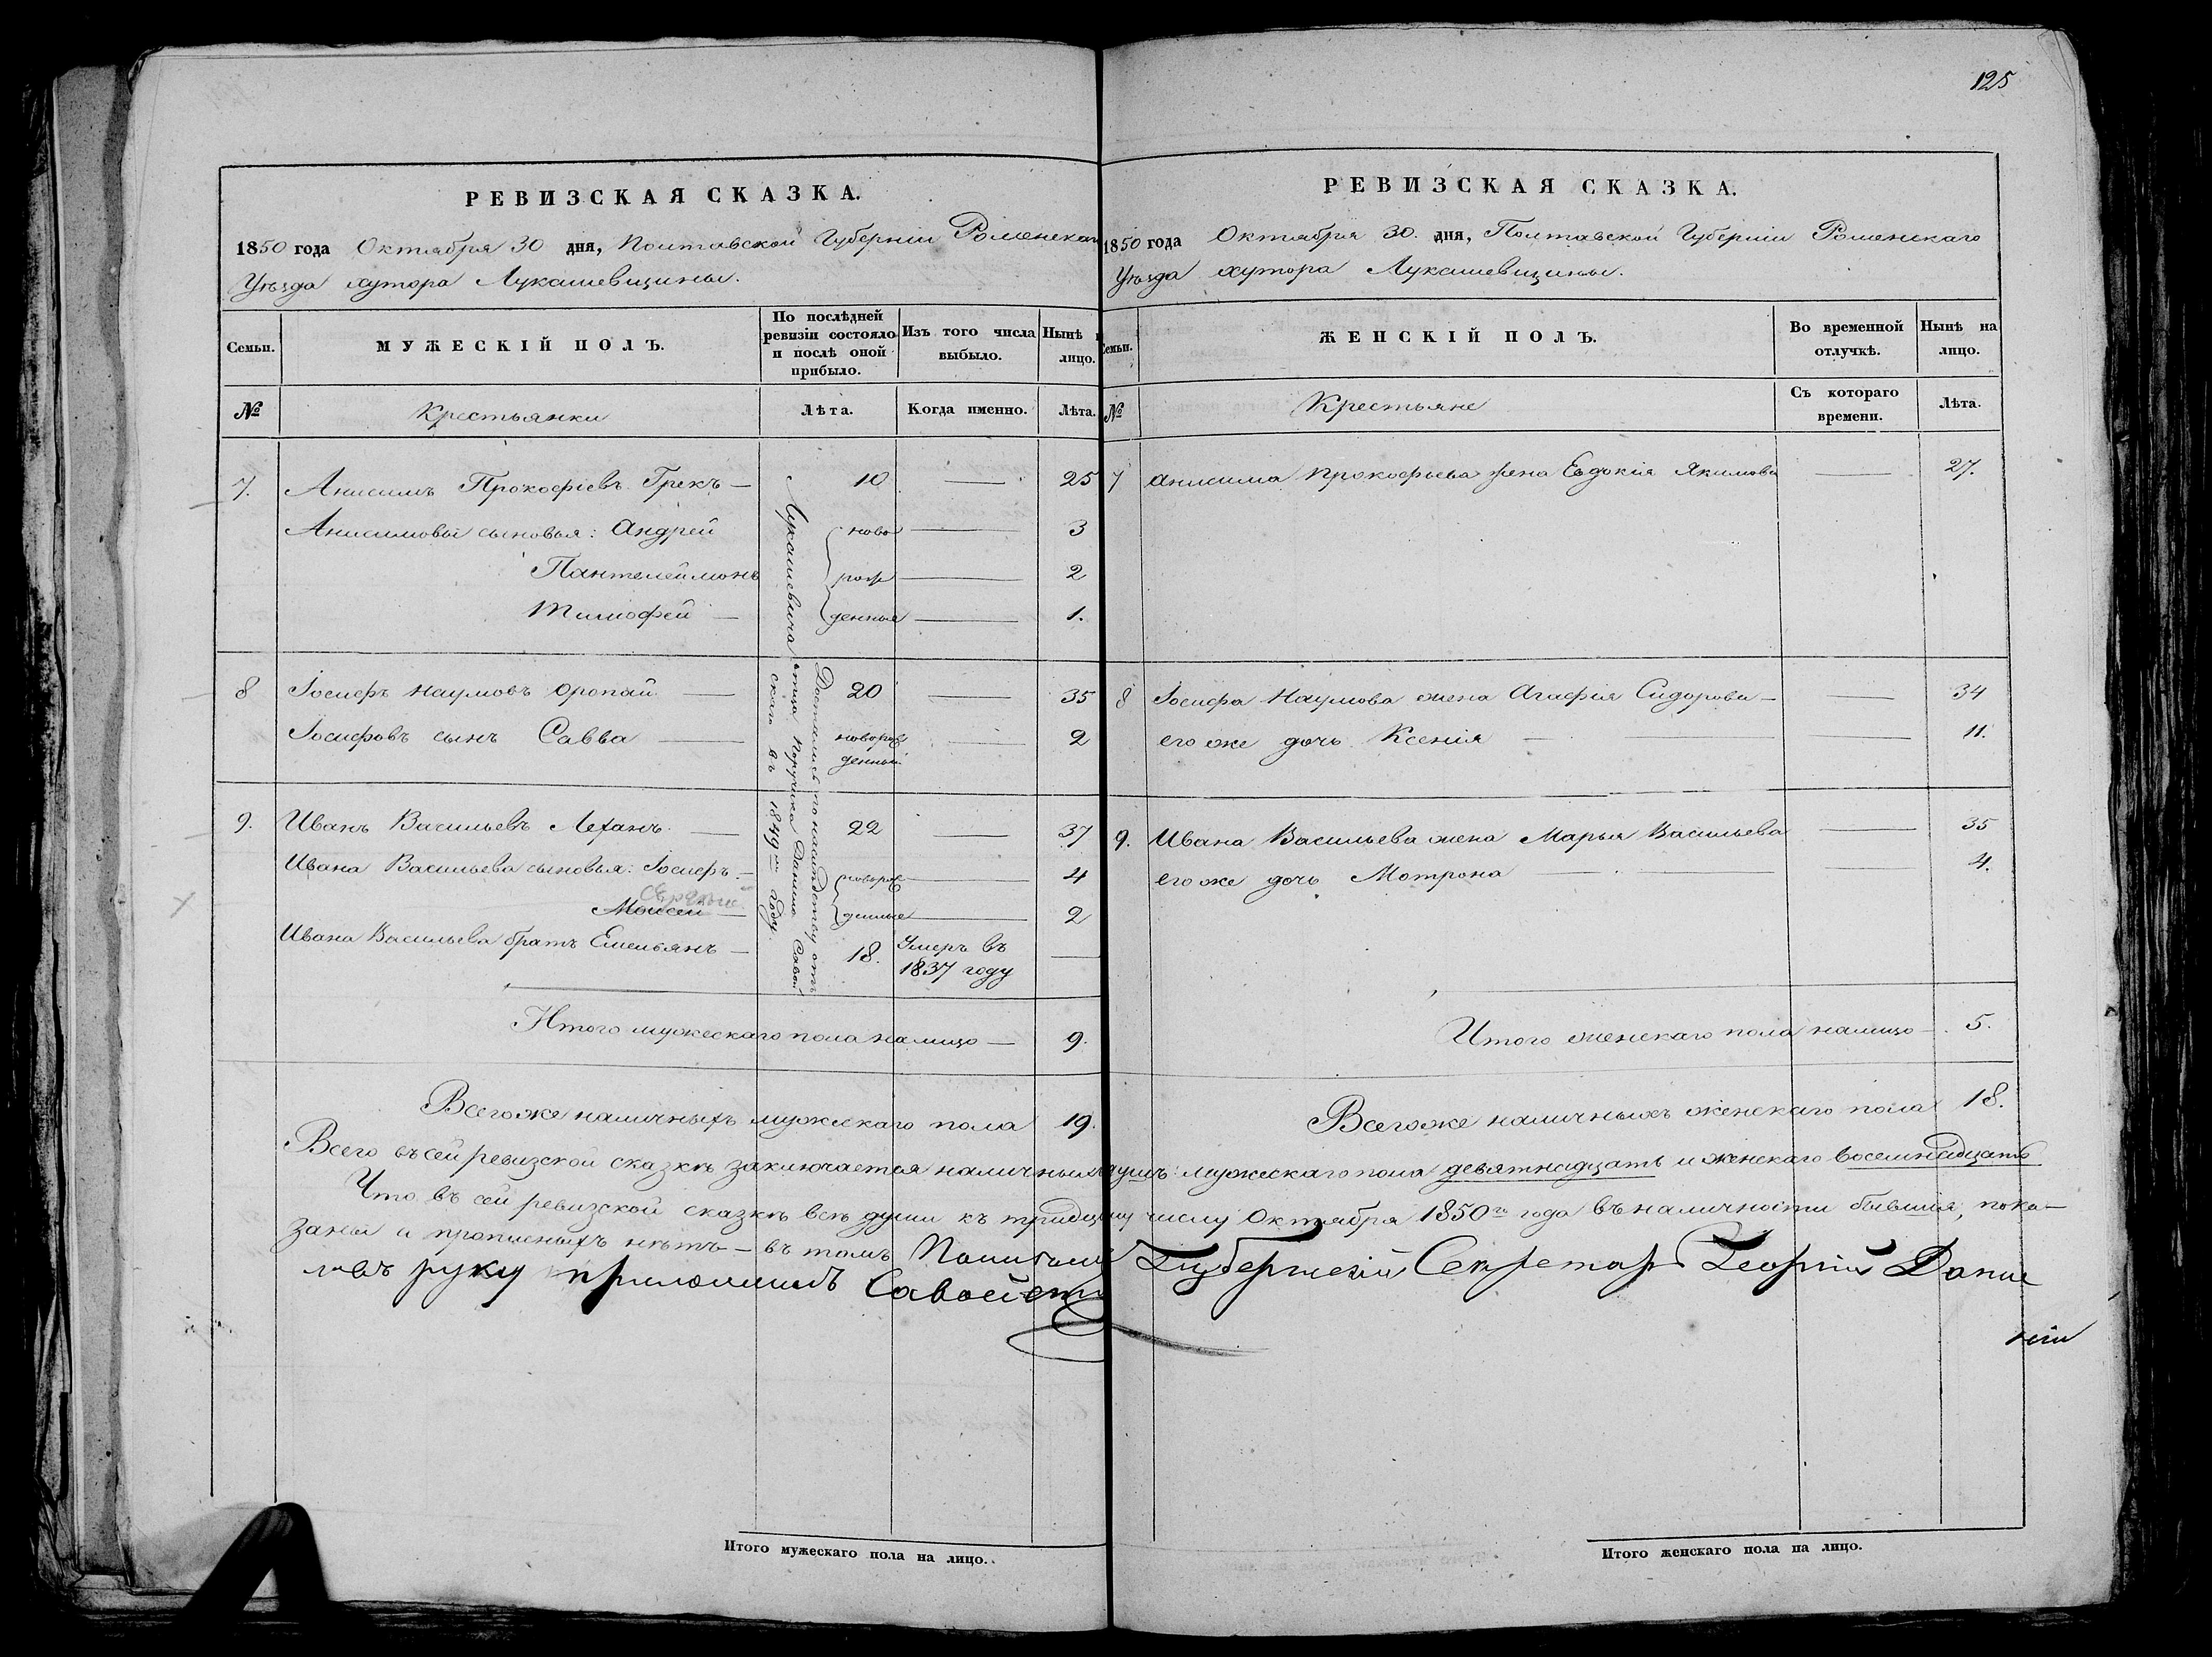 125
РЕВИЗСКАЯ СКАЗКА.
1850 года Октября 30 дня, Полтавской Губерніи Роменскаго
Уѣзда хутора Лукашевщины.
Семьи.
МУЖЕСКІЙ ПОЛЪ.
По послѣдней ревизіи состояло и послѣ оной прибыло.
Изъ того числа выбыло.
Нынѣ на лицо.
№
Крестьянки
Лѣта.
Когда именно.
Лѣта.
7. Анисимъ Прокофіевъ Грекъ — 10 — 25
Анисимовы сыновья: Андрей ново — 3
Пантелеймонъ рож — 2
Тимофей — денные — 1.
8 Іосифъ Наумовъ Оропай — 20 — 35
Іосифовъ сынъ Савва — новорож — 2
денный
9. Иванъ Васильевъ Леханъ — 22 — 37
Ивана Васильева сыновья: Іосифъ — новорож — 4
Моисей — денные — 2
Ивана Васильева братъ Емельянъ — 18. Умеръ въ 1837 году —
Достались по наслѣдству отъ
отца Поручика Данило Савой
скаго въ 1849 году.
Лукашевича
Итого мужескаго пола налицо — 9.
Всего же наличныхъ мужескаго пола 19.
РЕВИЗСКАЯ СКАЗКА.
1850 года Октября 30. дня, Полтавской Губерніи Роменскаго
Уѣзда хутора Лукашевщины.
Семьи.
ЖЕНСКІЙ ПОЛЪ.
Во временной отлучкѣ.
Нынѣ на лицо.
№
Крестьяне
Съ котораго времени.
Лѣта.
7 Анисима Прокофьева жена Евдокія Якимова — 27.
8 Іосифа Наумова жена Агафія Сидорова — 34
его же дочь Ксенія — 11.
9. Ивана Васильева жена Марья Васильева — 35
его же дочь Мотрона — 4.
Итого женскаго пола налицо — 5.
Всего же наличныхъ женскаго пола 18.
Всего въ сей ревизской сказкѣ заключается наличныхъ душъ: мужескаго пола девятнадцать и женскаго восемнадцать
Что въ сей ревизской сказкѣ всѣ души къ тридцатому числу Октября 1850го года въ наличности бывшія, пока-
заны и прописныхъ нѣтъ — въ томъ Губернскій Секретарь Георгій Дани
ловъ руку приложилъ
Итого мужескаго пола на лицо.
Итого женскаго пола на лицо.